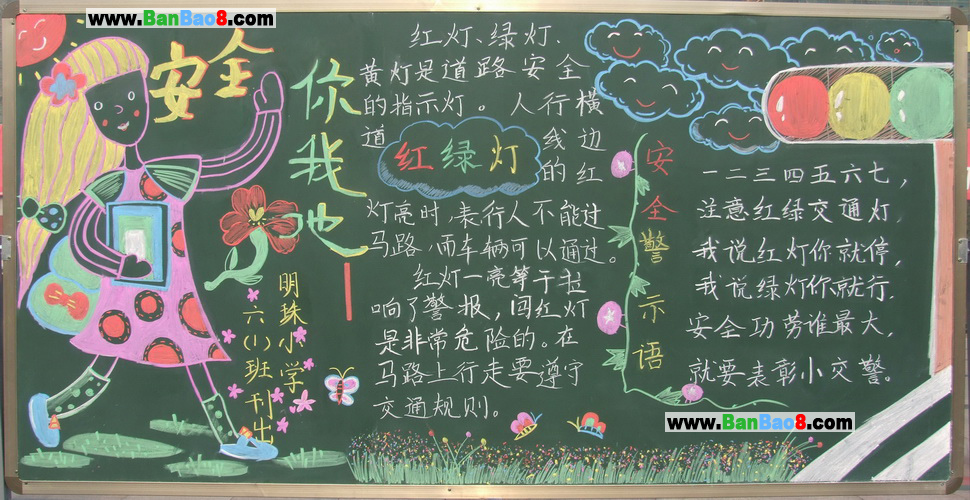 www.BanBao8.com
安全
你我他
明珠小学
六(1)班刊出
红灯、绿灯、
黄灯是道路安全
的指示灯。人行横
道
红绿灯
线边
的红
灯亮时,表行人不能过
马路,而车辆可以通过。
红灯一亮等于拉
响了警报,闯红灯
是非常危险的。在
马路上行走要遵守
交通规则。
安全警示语
一二三四五六七,
注意红绿交通灯,
我说红灯你就停,
我说绿灯你就行.
安全功劳谁最大,
就要表彰小交警。
www.BanBao8.com